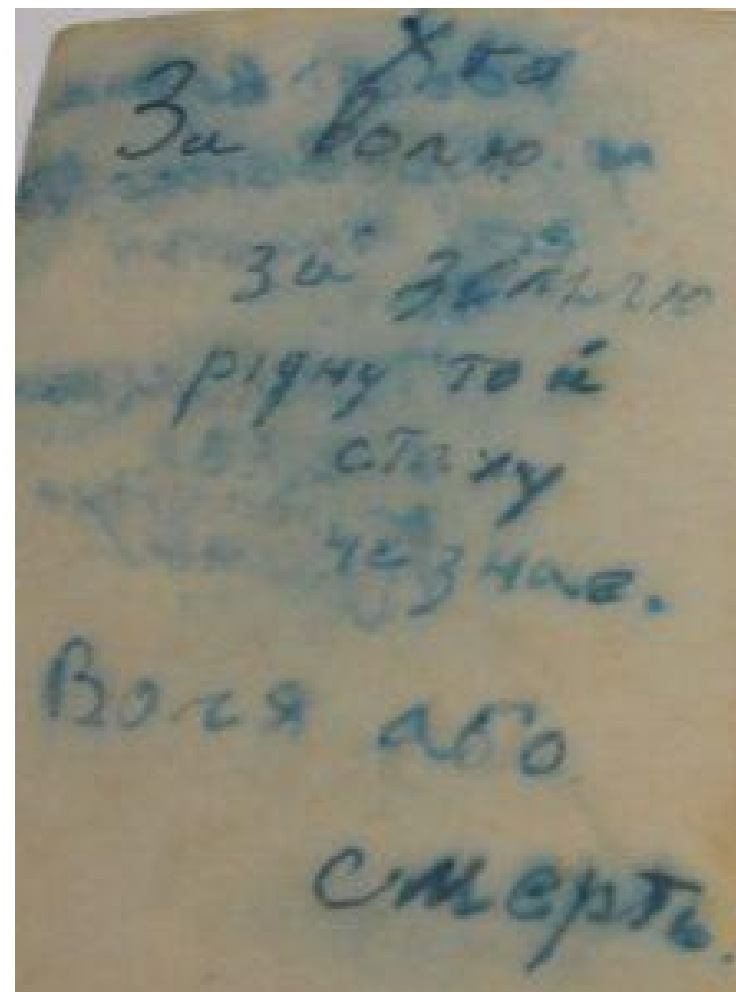 Хто
За волю
за землю
рідну той
страху
не знає.
Воля або
смерть.